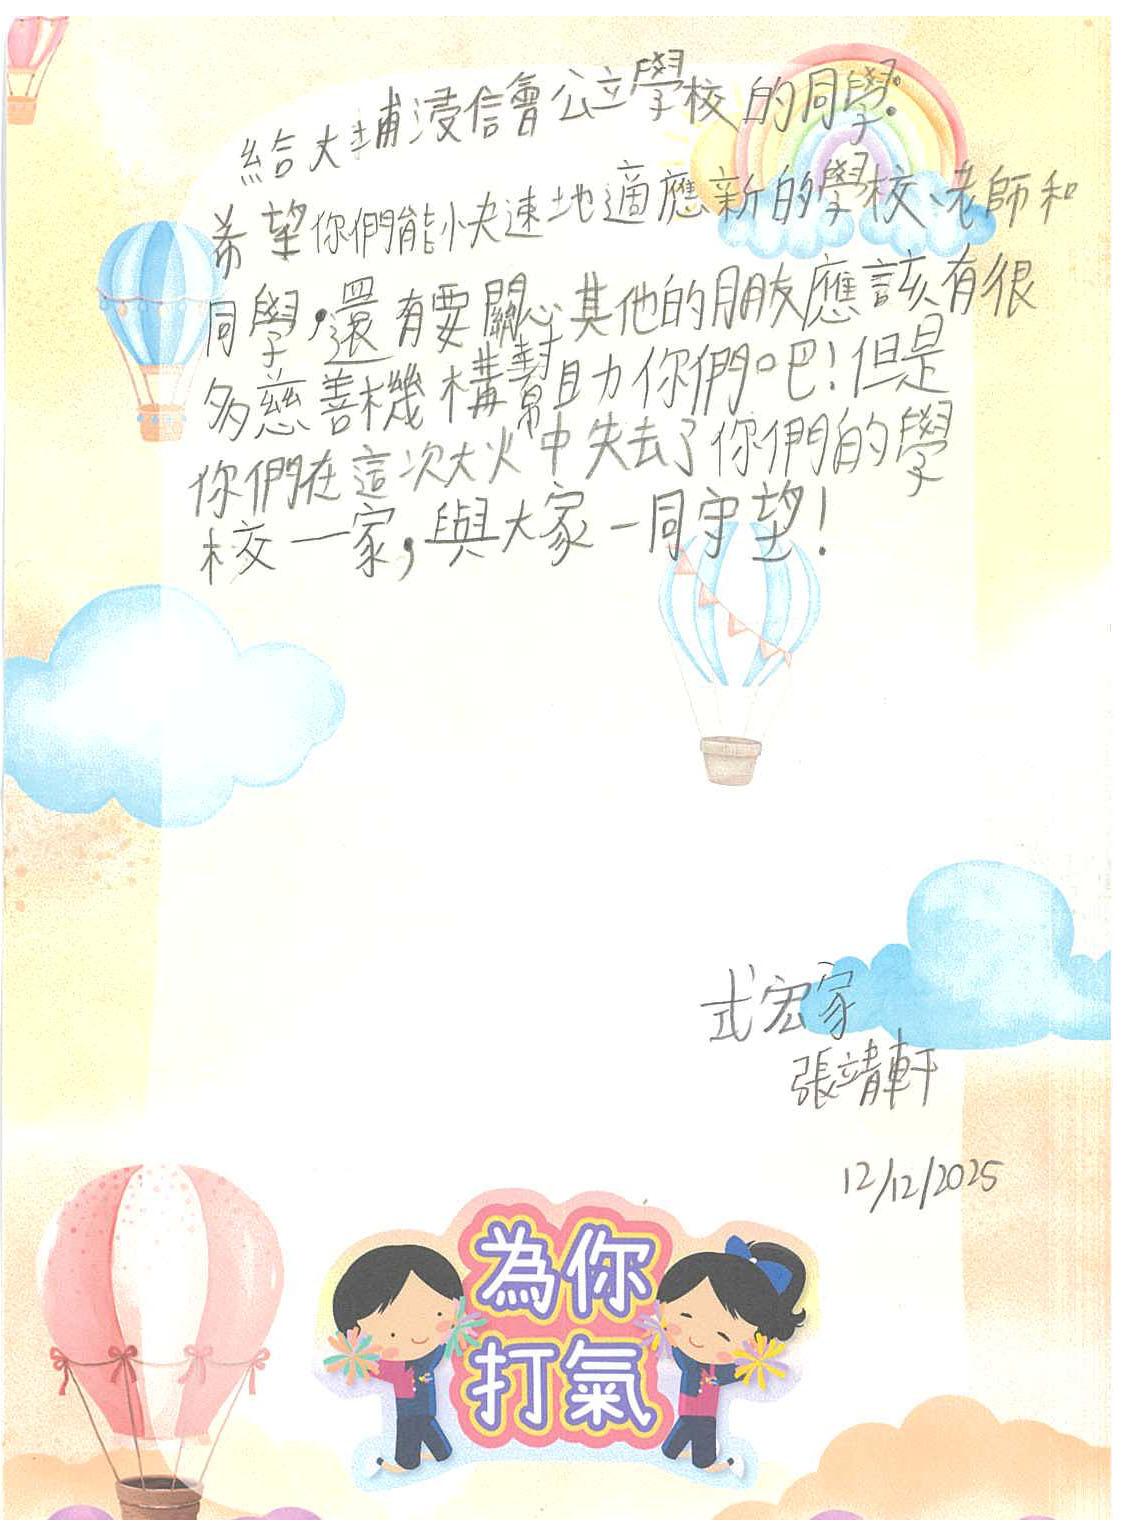 給大埔浸信會公立學校的同學:
希望你們能快速地適應新的學校、老師和
同學,還有要關心其他的朋友應該有很
多慈善機構幫助你們吧!但是
你們在這次大火中失去了你們的學
校一家,與大家一同守望!
式宏家
張靖軒
12/12/2025
為你
打氣